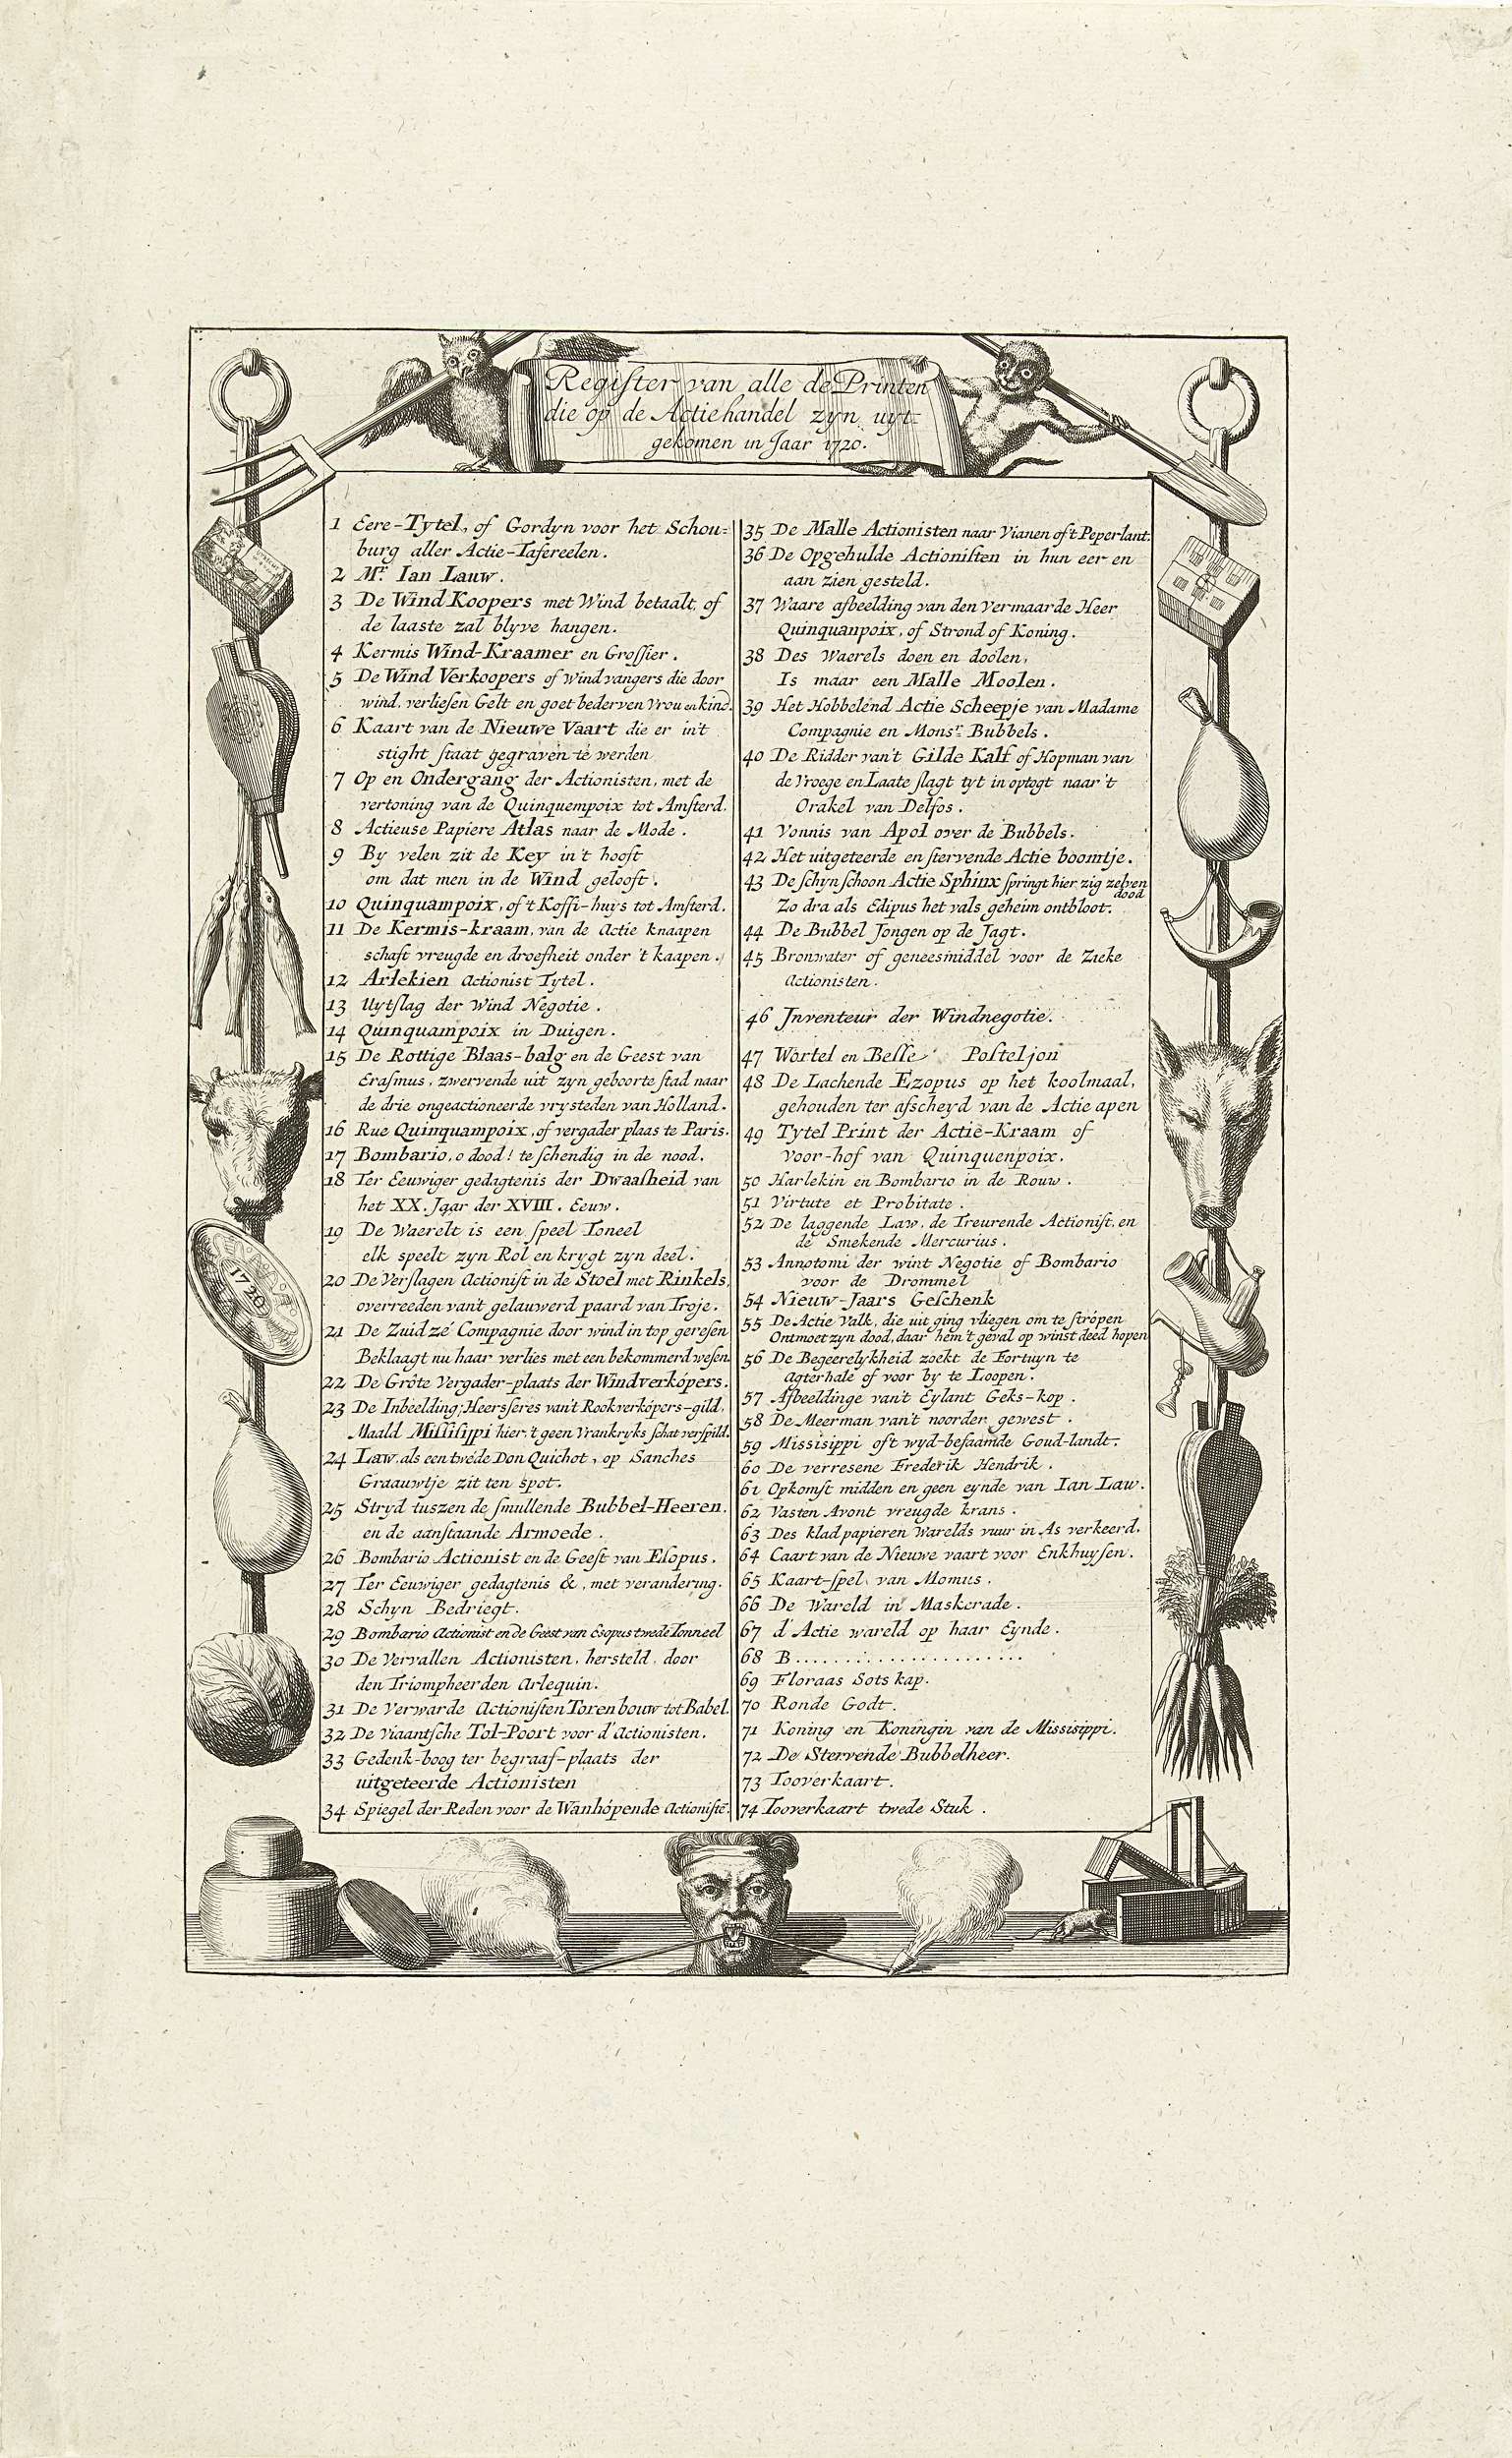 Register van alle de Printen
die op de Actiehandel zyn uyt-
gekomen in Jaar 1720.
1 Eere-Tytel, of Gordyn voor het Schou=
burg aller Actie-Tafereelen.
2 Mr. Ian Lauw.
3 De Wind Koopers met Wind betaalt, of
de laaste zal blyve hangen.
4 Kermis Wind-Kraamer en Grossier.
5 De Wind Verkoopers of Windvangers die door
wind, verliesen Gelt en goet bederven Vrou en kind.
6 Kaart van de Nieuwe Vaart die er in't
stight staat gegraven te werden
7 Op en Ondergang der Actionisten, met de
vertoning van de Quinquempoix tot Amsterd.
8 Actieuse Papiere Atlas naar de Mode.
9 By velen zit de Key in't hooft
om dat men in de Wind gelooft.
10 Quinquampoix, of 't Koffi-huys tot Amsterd.
11 De Kermis-kraam, van de Actie knaapen
schaft vreugde en droefheit onder 't kaapen.
12 Arlekien Actionist Tytel.
13 Uytslag der Wind Negotie.
14 Quinquampoix in Duigen.
15 De Rottige Blaas-balg en de Geest van
Erasmus, zwervende uit zyn geboorte stad naar
de drie ongeactioneerde vrysteden van Holland.
16 Rue Quinquampoix, of vergader plaas te Paris.
17 Bombario, o dood! te schendig in de nood.
18 Ter Eeuwiger gedagtenis der Dwaasheid van
het XX. Jaar der XVIII. Eeuw.
19 De Waerelt is een speel Toneel
elk speelt zyn Rol en krygt zyn deel.
20 De Verslagen Actionist in de Stoel met Rinkels,
overreeden van't gelauwerd paard van Troje.
21 De Zuid zé Compagnie door wind in top geresen
Beklaagt nu haar verlies met een bekommerd wesen.
22 De Gróte Vergader-plaats der Windverkópers.
23 De Inbeelding; Heersseres van't Rookverkópers-gild,
Maald Missisippi hier, 't geen Vrankryks schat verspild.
24 Law, als een twéde Don Quichot, op Sanches
Graauwtje zit ten spot.
25 Stryd tuszen de smullende Bubbel-Heeren.
en de aanstaande Armoede.
26 Bombario Actionist en de Geest van Esopus.
27 Ter Eeuwiger gedagtenis &, met verandering.
28 Schyn Bedriegt.
29 Bombario Actionist en de Geest van Esopus twede Tonneel
30 De Vervallen Actionisten, hersteld, door
den Triompheerden Arlequin.
31 De Verwarde Actionisten Torenbouw tot Babel.
32 De Viaantsche Tol-Poort voor d'Actionisten.
33 Gedenk-boog ter begraaf-plaats der
uitgeteerde Actionisten
34 Spiegel der Reden voor de Wanhópende Actionistē.
35 De Malle Actionisten naar Vianen oft Peperlant.
36 De Opgehulde Actionisten in hun eer en
aan zien gesteld.
37 Waare afbeelding van den Vermaarde Heer
Quinquanpoix, of Strond of Koning.
38 Des Waerels doen en doólen,
Is maar een Malle Moolen.
39 Het Hobbelénd Actie Scheepje van Madame
Compagnie en Monsr. Bubbels.
40 De Ridder van't Gilde Kalf of Hopman van
de Vroege en Laate slagt tyt in optogt naar 't
Orakel van Delfos.
41 Vonnis van Apol over de Bubbels.
42 Het uitgeteerde en stervende Actie boomtje.
43 De schyn schoon Actie Sphinx springt hier zig zelven
dood
Zo dra als Edipus het vals geheim ontbloot.
44 De Bubbel Jongen op de Jagt.
45 Bronwater of geneesmiddel voor de Zieke
Actionisten.
46 Inventeur der Windnegotie.
47 Wortel en Besse Posteljon
48 De Lachende Ezopus op het koolmaal,
gehouden ter afscheyd van de Actie apen
49 Tytel Print der Actie-Kraam of
voor-hof van Quinquenpoix.
50 Harlekin en Bombario in de Rouw.
51 Virtute et Probitate.
52 De laggende Law, de Treurende Actionist, en
de Smekende Mercurius.
53 Annotomi der wint Negotie of Bombario
voor de Drommel
54 Nieuw-Jaars Geschenk
55 De Actie Valk, die uit ging vliegen om te strópen
Ontmoet zyn dood, daar hem 't geval op winst deed hopen
56 De Begeerelykheid zoekt de Fortuyn te
agterhale of voor by te Loopen.
57 Afbeeldinge van't Eylant Geks-kop.
58 De Meerman van't noorder gewest.
59 Missisippi oft wyd-befaamde Goud-landt.
60 De verresene Frederik Hendrik.
61 Opkomst midden en geen eynde van Ian Law.
62 Vasten Avont vreugde krans.
63 Des klad papieren Warelds vuur in As verkeerd.
64 Caart van de Nieuwe vaart voor Enkhuysen.
65 Kaart-spel van Momus.
66 De Wareld in Maskerade.
67 d'Actie wareld op haar Eynde.
68 B......................
69 Floraas Sots kap.
70 Ronde Godt.
71 Koning en Koningin van de Missisippi.
72 De Stervende Bubbelheer.
73 Tooverkaart.
74 Tooverkaart twede Stuk.
1720